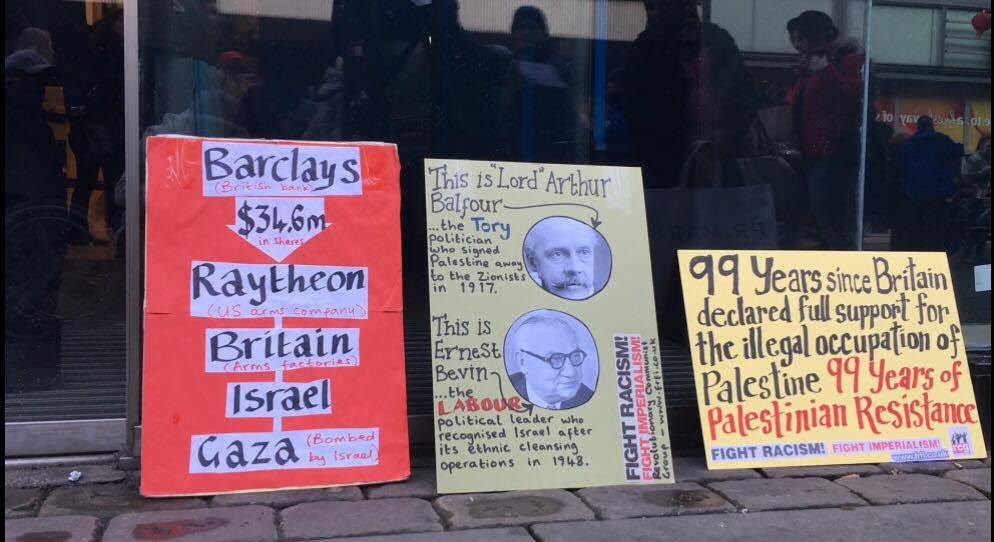 Barclays
(British bank)
$34.6m
in shares
Raytheon
(US arms company)
Britain
(Arms factories)
Israel
Gaza (Bombed
by Israel)
This is "Lord" Arthur
Balfour
...the Tory
politician
who signed
Palestine away
to the Zionists
in 1917.
This is
Ernest
Bevin
...the
LABOUR
political leader who
recognised Israel after
its ethnic cleansing
operations in 1948.
FIGHT RACISM!
FIGHT IMPERIALISM!
Revolutionary Communist
Group - www.frfi.co.uk
99 Years since Britain
declared full support for
the illegal occupation of
Palestine 99 Years of
Palestinian Resistance
FIGHT RACISM! FIGHT IMPERIALISM!